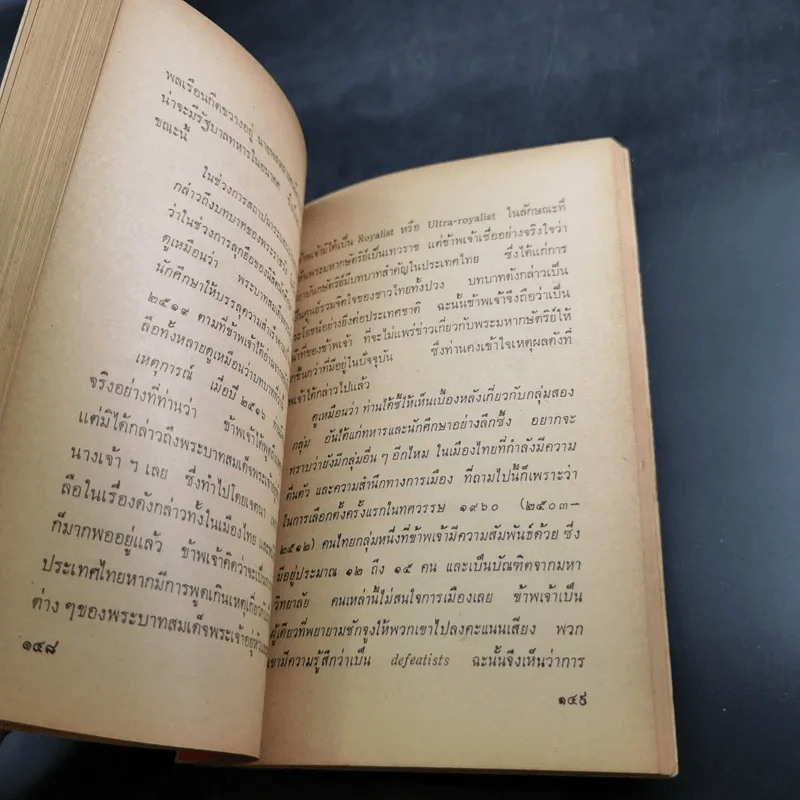 พลเรือนกีดขวางอยู่
น่าจะมีรัฐบาลทหารในอนาคต
ขณะนี้
ในช่วงการสถาปนาระบอบ
กล่าวถึงบทบาทของพระราชวัง
ว่าในช่วงการลุกฮือของนิสิต
ดูเหมือนว่า พระบาทสมเด็จ
นักศึกษาให้บรรลุความสำเร็จ
๒๕๑๙ ตามที่ข้าพเจ้าได้อ่าน
ลือทั้งหลายดูเหมือนว่าบทบาท
เหตุการณ์ เมื่อปี ๒๕๑๖
จริงอย่างที่ท่านว่า ข้าพเจ้าได้พูดถึง
แต่มิได้กล่าวถึงพระบาทสมเด็จพระเจ้าอยู่
นางเจ้า ฯ เลย ซึ่งทำไปโดยเจตนา
ลือในเรื่องดังกล่าวทั้งในเมืองไทย
ก็มากพออยู่แล้ว ข้าพเจ้าคิดว่าจะเป็น
ประเทศไทยหากมีการพูดเกินเหตุเกี่ยวกับ
ต่าง ๆ ของพระบาทสมเด็จพระเจ้าอยู่หัว
๑๔๘
ข้าพเจ้ามิได้เป็น Royalist หรือ Ultra-royalist ในลักษณะที่
เห็นพระมหากษัตริย์เป็นเทวราช แต่ข้าพเจ้าเชื่ออย่างจริงใจว่า
สถาบันกษัตริย์มีบทบาทสำคัญในประเทศไทย ซึ่งได้แก่การ
เป็นศูนย์รวมจิตใจของชาวไทยทั้งปวง บทบาทดังกล่าวเป็น
ประโยชน์อย่างยิ่งต่อประเทศชาติ ฉะนั้นข้าพเจ้าจึงถือว่าเป็น
หน้าที่ของข้าพเจ้า ที่จะไม่แพร่ข่าวเกี่ยวกับพระมหากษัตริย์ให้
มากขึ้นกว่าที่มีอยู่ในปัจจุบัน ซึ่งท่านคงเข้าใจเหตุผลดังที่
ข้าพเจ้าได้กล่าวไปแล้ว
ดูเหมือนว่า ท่านได้ชี้ให้เห็นเบื้องหลังเกี่ยวกับกลุ่มสอง
กลุ่ม อันได้แก่ทหารและนักศึกษาอย่างลึกซึ้ง อยากจะ
ทราบว่ายังมีกลุ่มอื่น ๆ อีกไหม ในเมืองไทยที่กำลังมีความ
ตื่นตัว และความสำนึกทางการเมือง ที่ถามไปนี้ก็เพราะว่า
ในการเลือกตั้งครั้งแรกในทศวรรษ ๑๙๖๐ (๒๕๐๓–
๒๕๑๒) คนไทยกลุ่มหนึ่งที่ข้าพเจ้ามีความสัมพันธ์ด้วย ซึ่ง
มีอยู่ประมาณ ๑๒ ถึง ๑๕ คน และเป็นบัณฑิตจากมหา
วิทยาลัย คนเหล่านี้ไม่สนใจการเมืองเลย ข้าพเจ้าเป็น
ผู้เดียวที่พยายามชักจูงให้พวกเขาไปลงคะแนนเสียง พวก
เขามีความรู้สึกว่าเป็น defeatists ฉะนั้นจึงเห็นว่าการ
๑๔๙